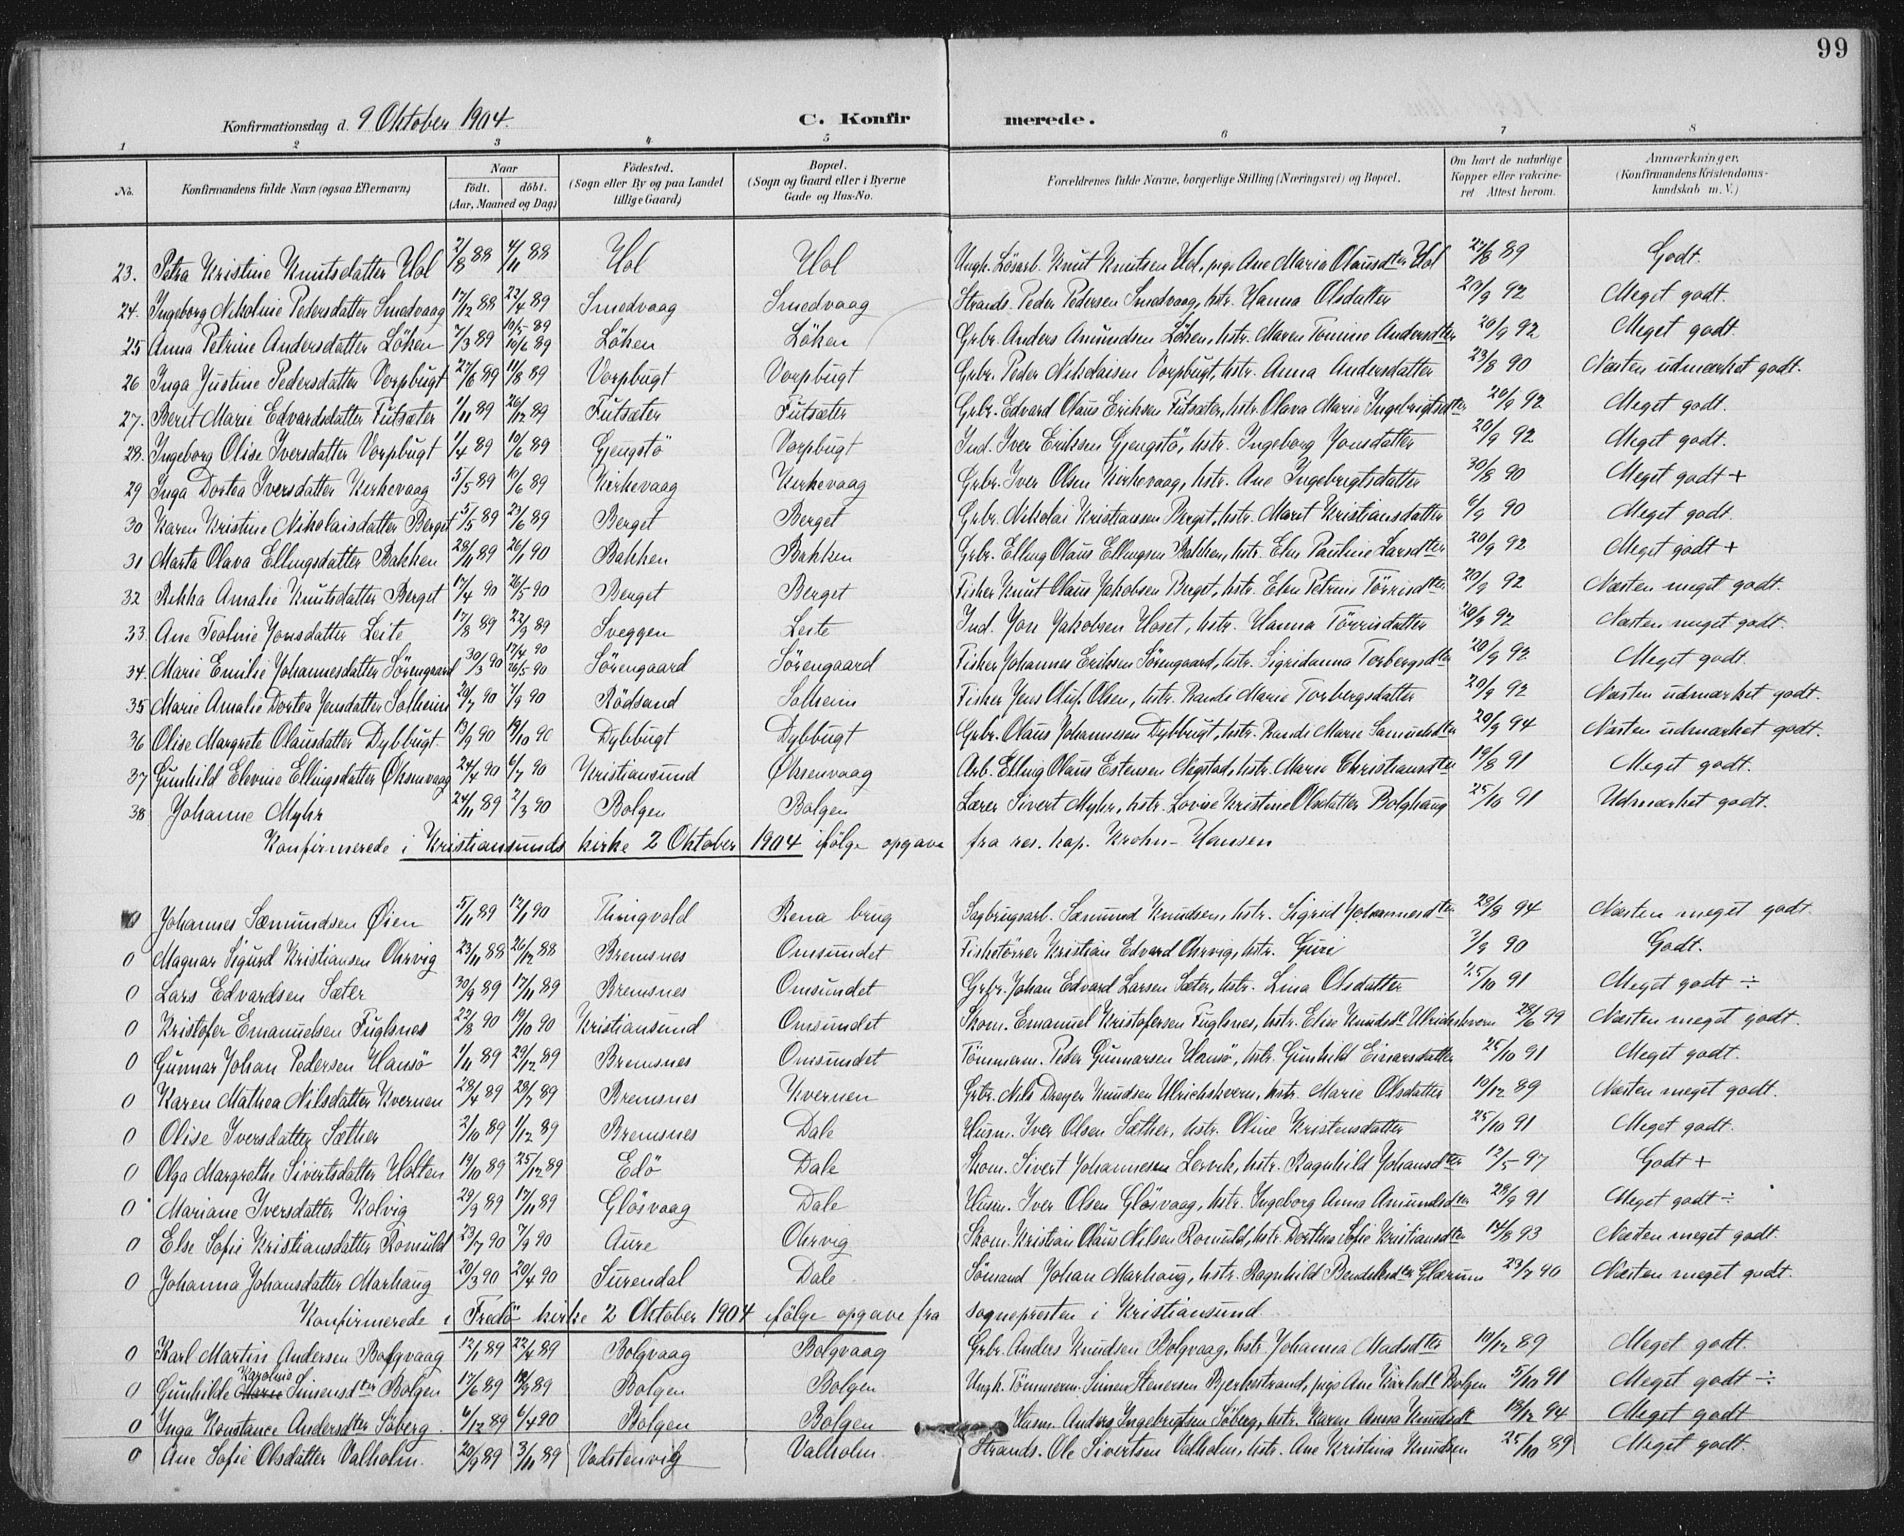 99
Konfirmationsdag d. 9 Oktober 1904. C. Konfirmerede.
1 2 3 4 5 6 7 8
No. Konfirmandens fulde Navn (ogsaa Efternavn) Naar født. døbt. (Aar, Maaned og Dag) Fødested. (Sogn eller By og paa Landet tillige Gaard) Bopæl. (Sogn og Gaard eller i Byerne Gade og Hus-No. Forældrenes fulde Navne, borgerlige Stilling (Næringsvei) og Bopæl. Om havt de naturlige Kopper eller vaccineret Attest herom. Anmærkninger. (Konfirmandens Kristendomskundskab m. V.)
23. Petra Kristine Knutsdatter Hol 2/8 88 4/11 88 Hol Hol Ungk. Løsarb. Knut Knutsen Hol, pige Ane Maria Olausdter Hol 27/8 89 Godt.
24. Ingeborg Nikoline Pedersdatter Smedvaag 17/12 88 22/4 89 Smedvaag Smedvaag Strands. Peder Pedersen Smedvaag, hstr. Hanna Olsdatter 20/9 92 Meget godt.
25 Anna Petrine Andersdatter Løken 7/3 89 19/5 89 10/6 89 Løken Løken Grbr. Anders Amundsen Løken, hstr. Maren Tomine Andersdtter 20/9 92 Meget godt.
26 Inga Justine Pedersdatter Vorpbugt 27/6 89 11/8 89 Vorpbugt Vorpbugt Grbr. Peder Nikolaisen Vorpbugt, hstr. Anna Andersdatter 23/8 90 Næsten udmærket godt.
27. Berit Marie Edvardsdatter Futsæter 1/11 89 26/12 89 Futsæter Futsæter Grbr. Edvard Olaus Eriksen Futsæter, hstr. Olava Marie Ingebrigtsdter 20/9 92 Meget godt.
28. Ingeborg Olise Iversdatter Vorpbugt 1/4 89 10/6 89 Gjengstø Vorpbugt Ind. Iver Eriksen Gjengstø, hstr. Ingeborg Jonsdatter 20/9 92 Meget godt.
29 Inga Dortea Iversdatter Kirkevaag 5/5 89 10/6 89 Kirkevaag Kirkevaag Grbr. Iver Olsen Kirkevaag, hstr. Ane Ingebrigtsdatter 30/8 90 Meget godt +
30 Karen Kristine Nikolaisdatter Berget 5/5 89 23/6 89 Berget Berget Grbr. Nikolai Kristiansen Berget, hstr. Marit Kristiansdatter 6/9 90 Meget godt.
31 Marta Olava Ellingsdatter Bakken 28/11 89 26/1 90 Bakken Bakken Grbr. Elling Olaus Ellingsen Bakken, hstr. Elen Pauline Larsdter 20/9 92 Meget godt +
32 Rikka Amalie Knutsdatter Berget 17/4 90 26/5 90 Berget Berget Fisker Knut Olaus Jakobsen Berget, hstr. Elen Petrine Tørrisdter 20/9 92 Næsten meget godt.
33. Ane Teoline Jonsdatter Leite 17/8 89 22/9 89 Sveggen Leite Ind. Jon Jakobsen Hoset, hstr. Hanna Tørrisdatter 20/9 92 Næsten meget godt.
34. Marie Emilie Johannesdatter Sørengaard 30/3 90 17/4 90 26/5 90 Sørengaard Sørengaard Fisker Johannes Eriksen Sørengaard, hstr. Sigridanna Torbergsdter 20/9 92 Meget godt.
35 Marie Amalie Dortea Jensdatter Solheim 20/7 90 7/9 90 Rødsand Solheim Fisker Jens Oluf Olsen, hstr. Randi Marie Torbergsdatter 20/9 92 Næsten udmærket godt.
36 Olise Margrete Olausdatter Dybbugt. 13/9 90 19/10 90 Dybbugt Dybbugt Grbr. Olaus Johannesen Dybbugt, hstr. Randi Marie Samuelsdter 20/9 94 Næsten udmærket godt.
37 Gunhild Elevine Ellingsdatter Øksenvaag 24/4 90 6/7 90 Kristiansund Øksenvaag Arb. Elling Olaus Estensen Negstad, hstr. Marie Christiansdter 19/8 91 Meget godt.
38 Johanne Myhr 24/11 89 2/3 90 Bolgen Bolgen Lærer Sivert Myhr, hstr. Lovise Kristine Olsdatter Bolghaug 25/10 91 Udmærket godt.
Konfirmerede i Kristiansunds kirke 2 Oktober 1904 ifølge opgave fra res. kap. Krohn-Hansen
0 Johannes Sæmundsen Øien 5/11 89 12/1 90 Thingvold Rena brug Sagbrugsarb. Sæmund Knudsen, hstr. Sigrid Johannesdter 23/8 94 Næsten meget godt.
0 Magnar Sigurd Kristiansen Ohrvig 23/11 88 26/12 88 Bremsnes Omsundet Fisketørrer Kristian Edvard Ohrvig, hstr. Guri 3/9 90 Godt.
0 Lars Edvardsen Sæter 30/9 89 17/11 89 Bremsnes Omsundet Grbr. Johan Edvard Larsen Sæter, hstr. Lina Olsdatter 25/10 91 Meget godt ÷
0 Kristofer Emanuelsen Fuglsnes 22/8 90 19/10 90 Kristiansund Omsundet Skom. Emanuel Kristofersen Fuglsnes, hstr. Elise Knudsdt Ulrichskvern 29/6 99 Næsten meget godt.
0 Gunnar Johan Pedersen Hansø 1/11 89 29/12 89 Bremsnes Omsundet Tømmerm. Peder Gunnarsen Hansø, hstr. Gunhild Einarsdatter 25/10 91 Meget godt.
0 Karen Mathea Nilsdatter Kvernen 28/4 89 28/7 89 Bremsnes Kvernen Grbr. Nils Dreyer Knudsen Ulrichskvern, hstr. Marie Olsdatter 10/12 89 Næsten meget godt.
0 Olise Iversdatter Sæther 2/10 89 1/12 89 Bremsnes Dale Husm. Iver Olsen Sæther, hstr. Oline Kristensdatter 25/10 91 Meget godt.
0 Olga Margrethe Sivertsdatter Holten 19/10 89 25/12 89 Edø Dale Skom. Sivert Johannesen Lervik, hstr. Ragnhild Johansdter 12/5 97 Godt +
0 Mariane Iversdatter Kolvig 29/9 89 17/11 89 Gløsvaag Dale Husm. Iver Olsen Gløsvaag, hstr. Ingeborg Anna Amundsdter 29/9 91 Meget godt ÷
0 Else Sofie Kristiansdatter Romuld 23/7 90 7/9 90 Aure Ohrvig Skom. Kristian Olaus Nilsen Romuld, hstr. Dorthea Sofie Kristiansdter 14/8 93 Næsten meget godt.
0 Johanna Johansdatter Marhaug 20/3 90 20/4 90 Surendal Dale Sømand Johan Marhaug, hstr. Ragnhild Bendiksdter Glærum 23/7 90 Næsten meget godt.
Konfirmerede i Fredø kirke 2 Oktober 1904 ifølge opgave fra sognepresten i Kristiansund
0 Karl Martin Andersen Bolgvaag 12/1 89 22/4 89 Bolgvaag Bolgvaag Grbr. Anders Knudsen Bolgvaag, hstr. Johanna Madsdter 10/12 89 Meget godt.
Karoline
0 Gunhilde Marie Simensdter Bolgen 17/6 89 18/9 89 Bolgen Bolgen Ungk. Tømmerm. Simen Stenersen Bjerkestrand, pige Ane Karlsdt Bolgen 5/10 91 Meget godt ÷
0 Inga Konstance Andersdter Søberg. 6/12 89 6/4 90 Bolgen Bolgen Husm. Anders Ingebrigtsen Søberg, hstr. Karen Anna Knudsdt 18/12 94 Meget godt
0 Ane Sofie Olsdatter Valholm. 20/9 89 3/11 89 Vadstenvig Valholm. Strands. Ole Sivertsen Valholm, hstr. Ane Kristina Knudsen 25/10 89 Meget godt.